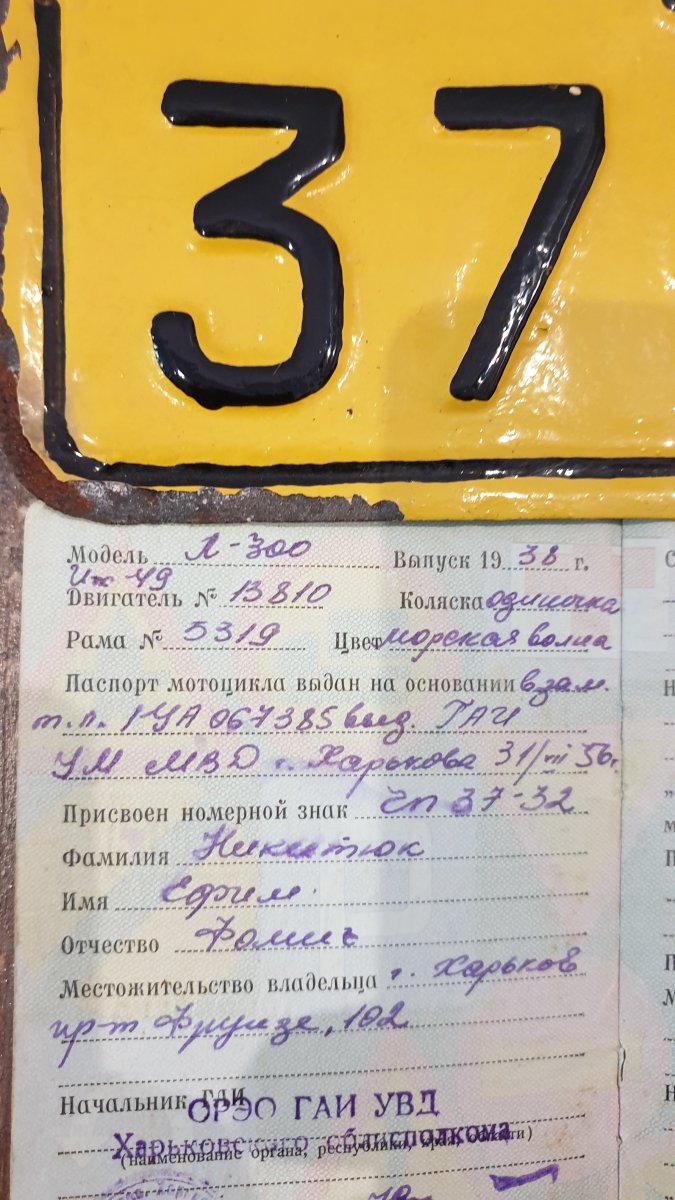 37
Модель Л-300 Выпуск 1938 г.
Иж-49
Двигатель № 13810 Коляска одиночка
Рама № 5319 Цвет морская волна
Паспорт мотоцикла выдан на основании взам.
т.п. 1 УА 067385 выд. ГАИ
УМ МВД г. Харькова 31/VII 56г.
Присвоен номерной знак ЧП 37-32
Фамилия Никитюк
Имя Ефим
Отчество Фомич
Местожительство владельца г. Харьков
пр-т Фрунзе, 102
Начальник ГАИ
ОРЭО ГАИ УВД
Харьковского облисполкома
(наименование органа, республики, края, области)